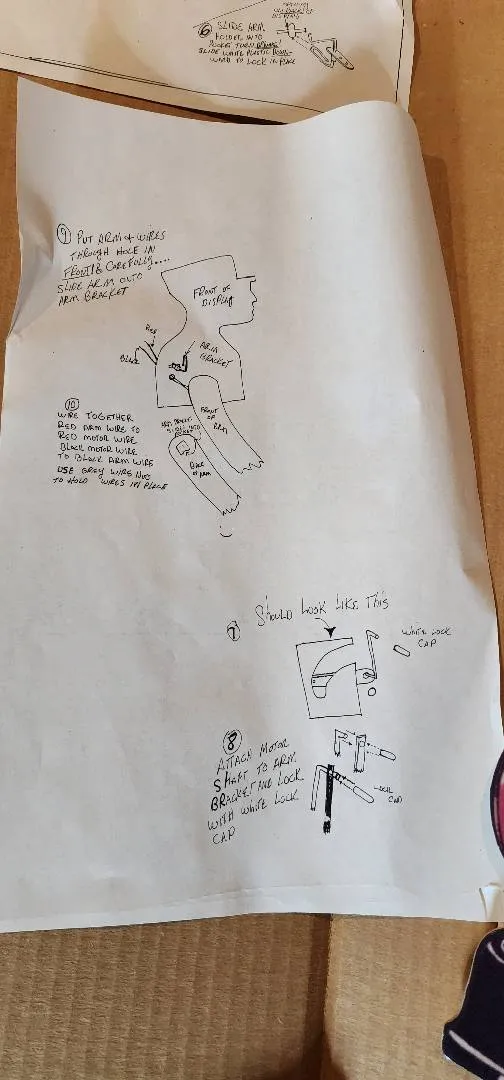 ⑥ SLIDE ARM
HOLDER INTO
SLIDE WHITE PLASTIC DOWN-
WARD TO LOCK IN PLACE
DISPLAY
⑨ PUT ARM & WIRES
THROUGH HOLE IN
FRONT & CAREFULLY....
SLIDE ARM ONTO
ARM BRACKET
FRONT OF
DISPLAY
RED
BLACK
ARM
BRACKET
FRONT
OF
ARM
BACK
OF ARM
⑩
WIRE TOGETHER
RED ARM WIRE TO
RED MOTOR WIRE
BLACK MOTOR WIRE
TO BLACK ARM WIRE
USE GREY WIRE NUT
TO HOLD WIRES IN PLACE
⑦ SHOULD LOOK LIKE THIS
WHITE LOCK
CAP
⑧
ATTACH MOTOR
SHAFT TO ARM
BRACKET AND LOCK
WITH WHITE LOCK
CAP
CAP